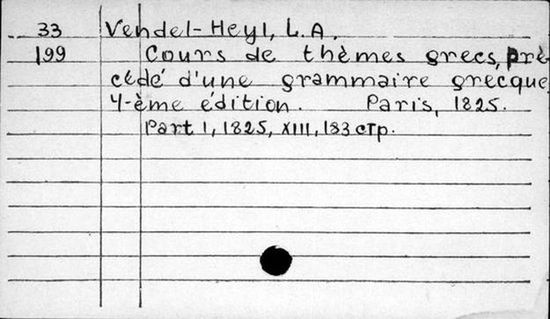 33 Vendel-Heyl, L.A.
199 Cours de thèmes grecs, pré-
cédé d'une grammaire grecque
4-ème édition. Paris, 1825.
Part 1, 1825, XIII, 183 стр.